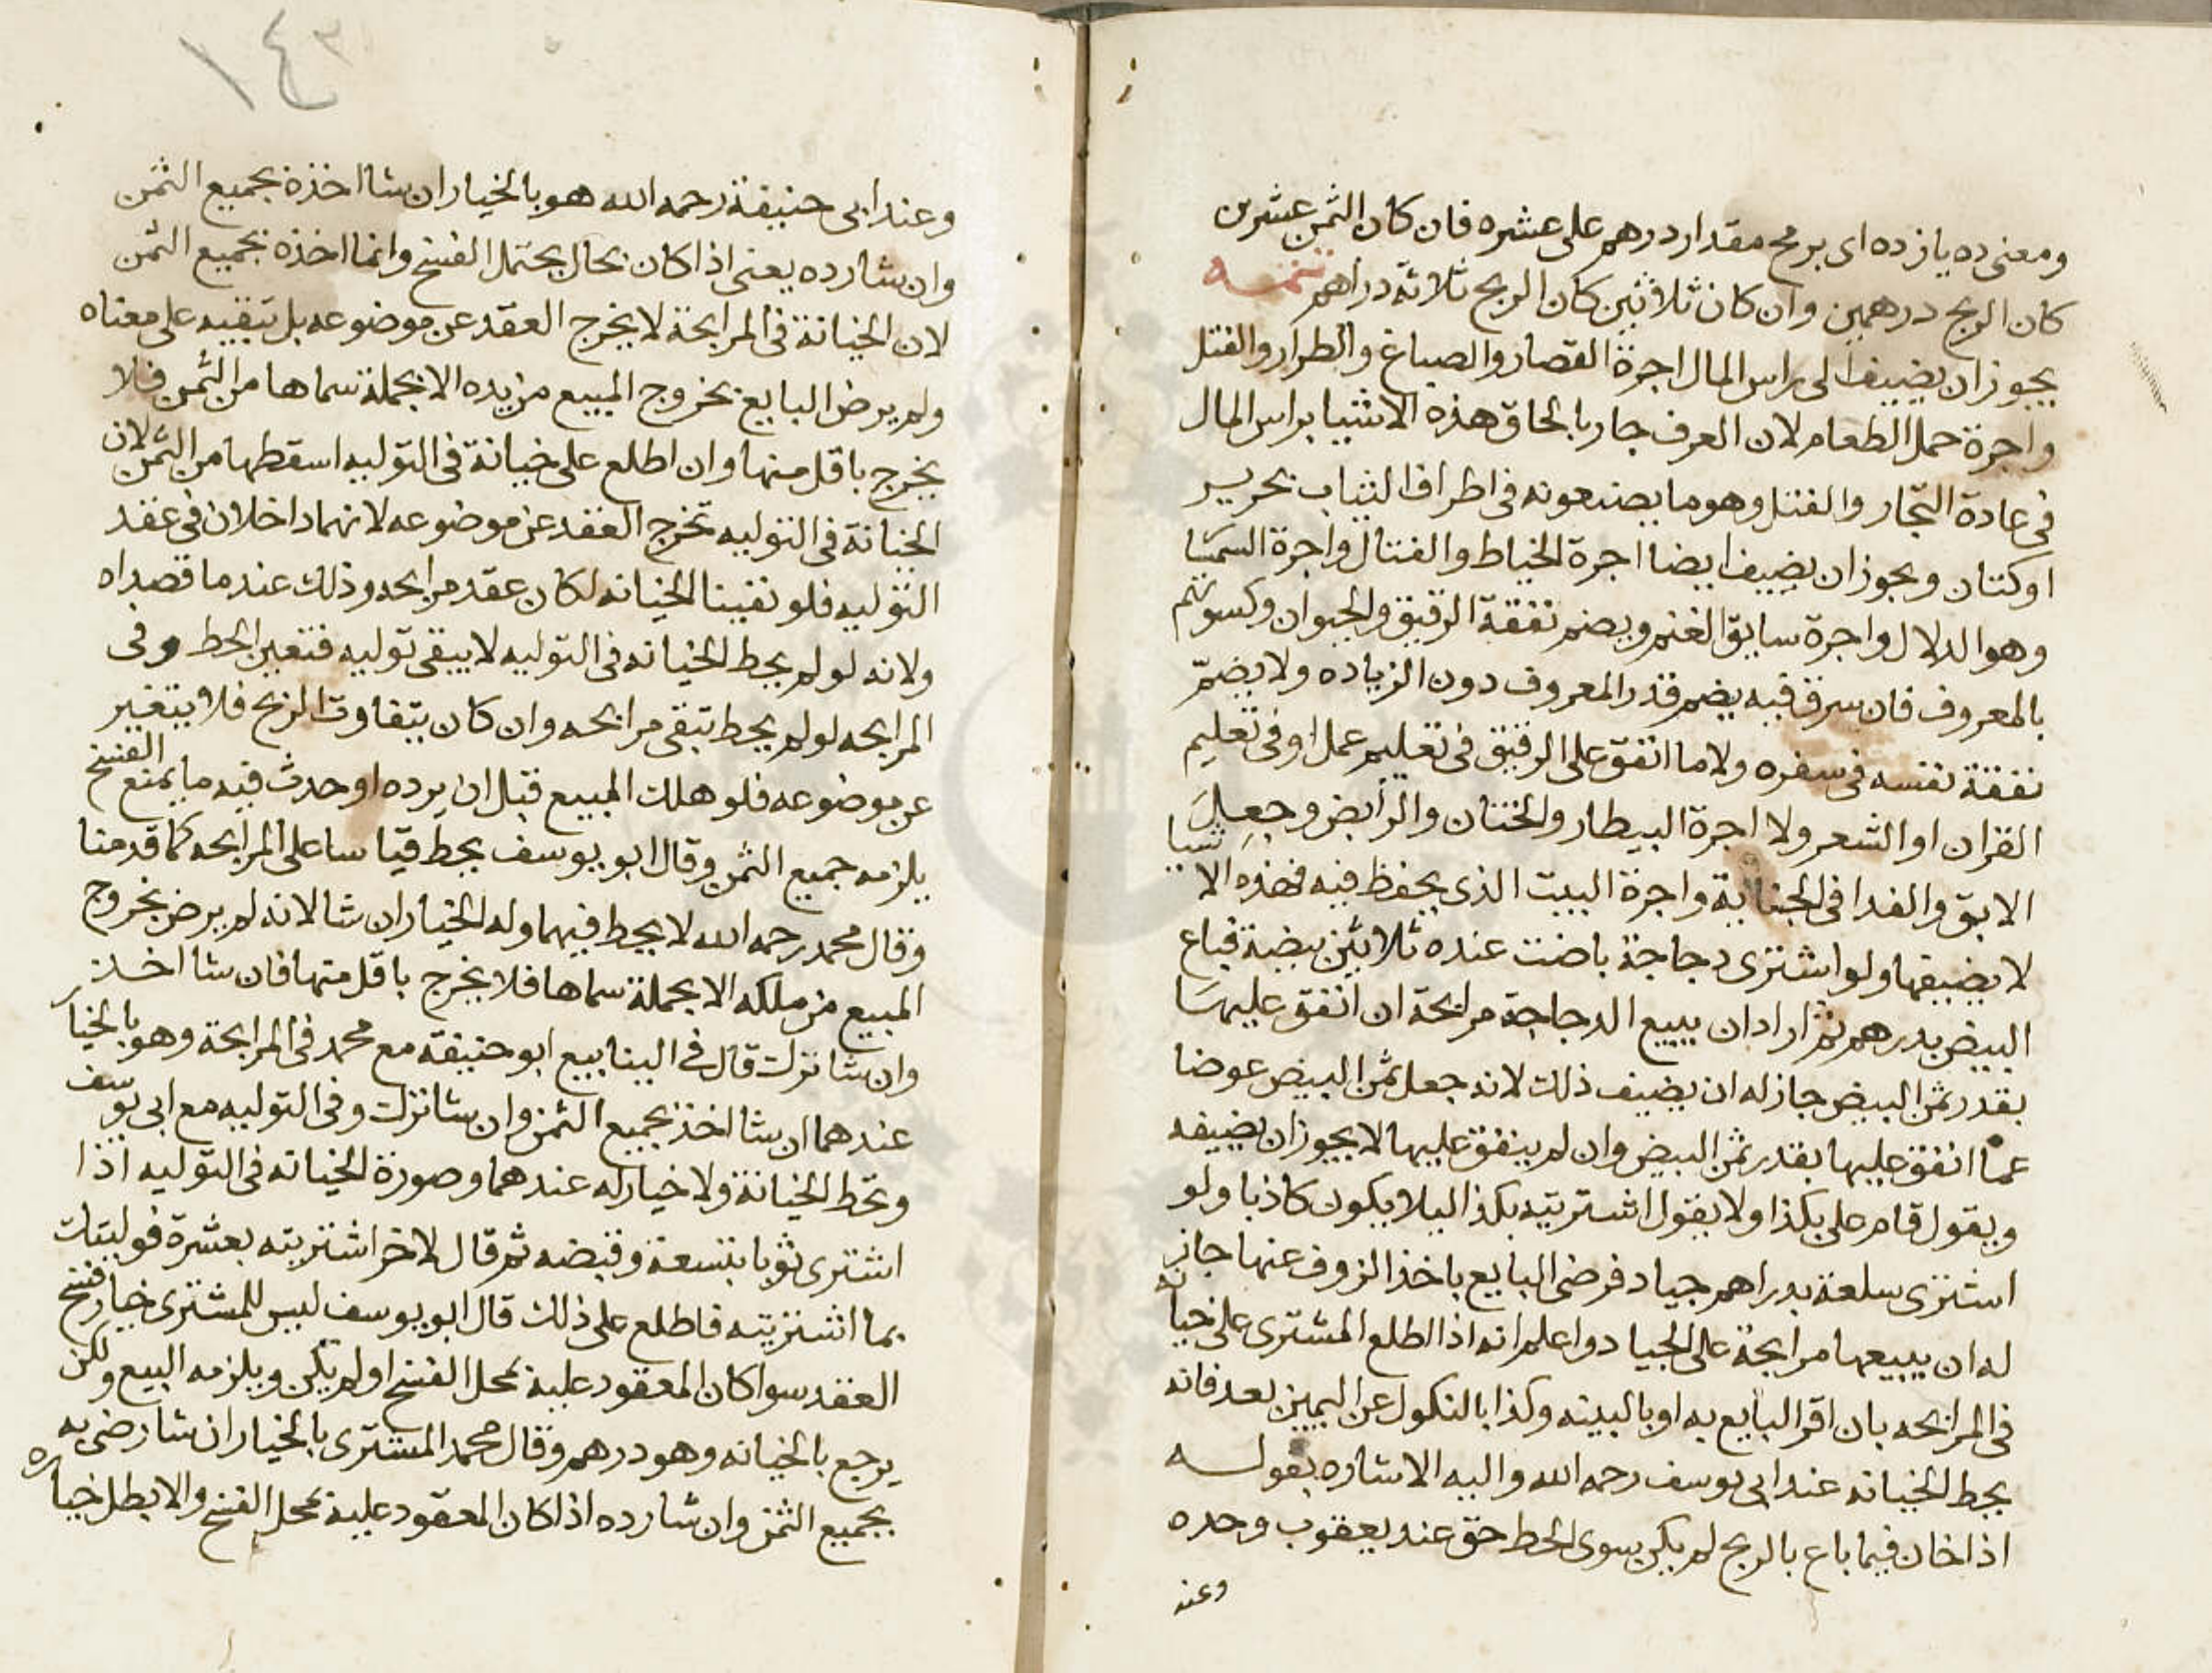 ومعنى ده يازده اى بربح مقدار درهم على عشره فان كان الثمن عشرين
كان الربح درهمين وان كان ثلاثين كان الربح ثلاثة دراهم تتمـــه
يجوز ان يضيف الى راس المال اجرة القصار والصباغ والطرار والفتل
واجرة حمل الطعام لان العرف جار بالحاق هذه الاشيا براس المال
فى عادة التجار والفتل وهو ما يصنعونه فى اطراف الثياب بحرير
او كتان ويجوز ان يضيف ايضا اجرة الخياط والفتال واجرة السمسا
وهو الدلال واجرة سايق الغنم ويضم نفقة الرقيق والحيوان وكسوتهم
بالمعروف فان سرق فيه يضم قدر المعروف دون الزياده ولا يضم
نفقة نفسه فى سفره ولا ما انفق على الرقيق فى تعليم عمل او فى تعليم
القران او الشعر ولا اجرة البيطار والختان والرابض وجعل
الابق والفدا فى الجناية واجرة البيت الذى يحفظ فيه فهذه الاشيا
لا يضيفها ولو اشترى دجاجة باضت عنده ثلاثين بيضة فباع
البيض بدرهم ثم اراد ان يبيع الدجاجة مرابحة ان انفق عليها
بقدر ثمن البيض جاز له ان يضيف ذلك لانه جعل ثمن البيض عوضا
عما انفق عليها بقدر ثمن البيض وان لم ينفق عليها لا يجوز ان يضيفه
ويقول قام على بكذا ولا يقول اشتريته بكذا ليلا يكون كاذبا ولو
اشترى سلعة بدراهم جياد فرضى البايع باخذ الزيوف عنها جاز
له ان يبيعها مرابحة على الجياد واعلم انه اذا اطلع المشترى على خيانه
فى المرابحه بان اقر البايع به او بالبينه وكذا بالنكول عن اليمين بعد فانه
يحط الخيانه عند ابى يوسف رحمه الله واليه الاشاره بقولـــه
اذا خان فيما باع بالربح لم يكن سوى الحط حق عند يعقوب وحده
وعند
١٤٣
وعند ابى حنيفة رحمه الله هو بالخيار ان شا اخذه بجميع الثمن
وان شا رده يعنى اذا كان بحال يحتمل الفسخ وانما اخذه بجميع الثمن
لان الخيانة فى المرابحة لا يخرج العقد عن موضوعه بل تبقيه على معناه
ولم يرض البايع بخروج المبيع من يده الا بجملة سماها من الثمن فلا
يخرج باقل منها وان اطلع على خيانة فى التوليه اسقطها من الثمن لان
الخيانة فى التوليه تخرج العقد عن موضوعه لانهما داخلان فى عقد
التوليه فلو نفينا الخيانه لكان عقد مرابحه وذلك عند ما قصداه
ولانه لو لم يحط الخيانه فى التوليه لا يبقى توليه فتعين الحط وفى
المرابحه لو لم يحط تبقى مرابحه وان كان يتفاوت الربح فلا يتغير
عن موضوعه فلو هلك المبيع قبل ان يرده او حدث فيه ما يمنع الفسخ
يلزمه جميع الثمن وقال ابو يوسف يحط قياسا على المرابحه كما قدمنا
وقال محمد رحمه الله لا يحط فيهما وله الخيار ان شا لانه لم يرض بخروج
المبيع من ملكه الا بجملة سماها فلا يخرج باقل منها فان شا اخذ
وان شا ترك قال فى الينابيع ابو حنيفة مع محمد فى المرابحة وهو بالخيار
عندهما ان شا اخذ بجميع الثمن وان شا ترك وفى التوليه مع ابى يوسف
وتحط الخيانة ولا خيار له عندهما وصورة الخيانه فى التوليه اذا
اشترى ثوبا بتسعة وقبضه ثم قال لاخر اشتريته بعشرة فوليتك
بما اشتريته فاطلع على ذلك قال ابو يوسف ليس للمشترى خيار فسخ
العقد سوا كان المعقود عليه بمحل الفسخ او لم يكن ويلزمه البيع ولكن
يرجع بالخيانه وهو درهم وقال محمد المشترى بالخيار ان شا رضى به
بجميع الثمن وان شا رده اذا كان المعقود عليه بمحل الفسخ والا بطل خياره